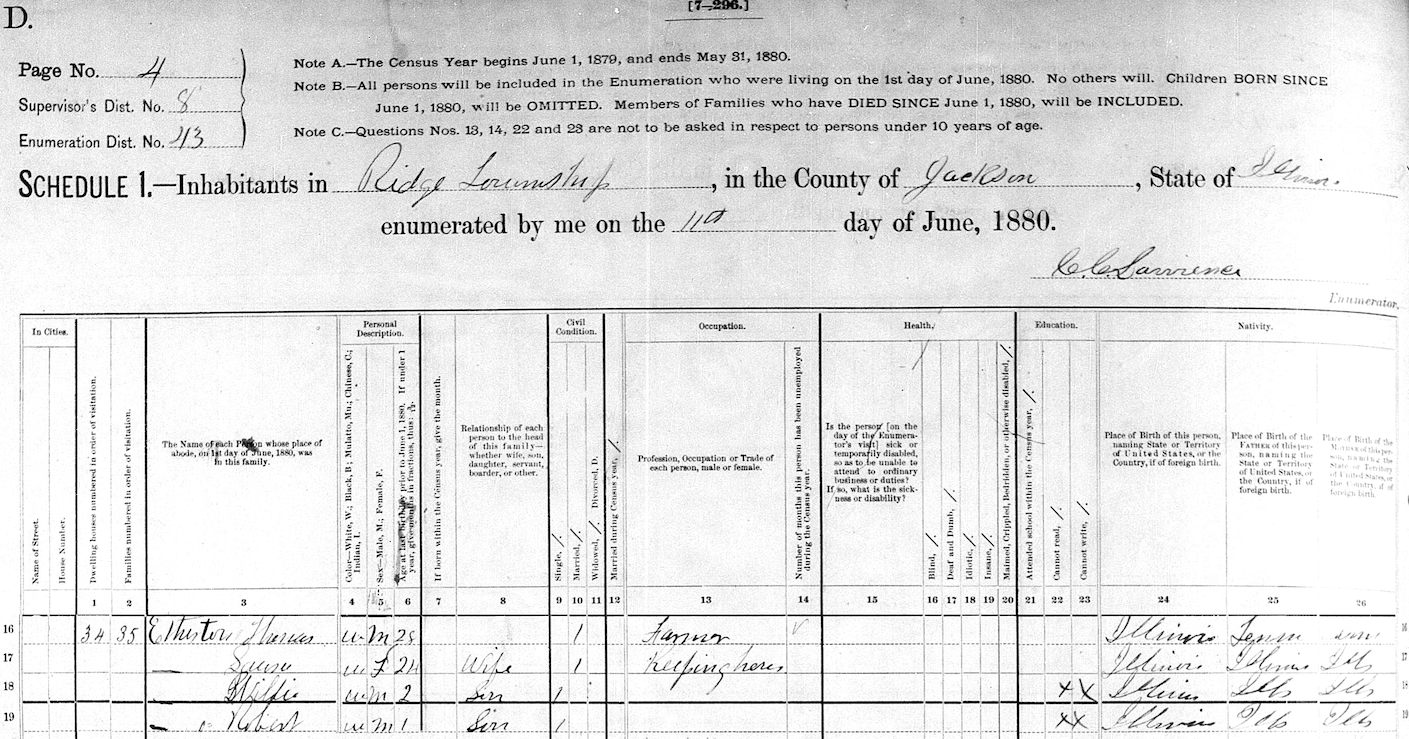 D.
[7-296.]
Page No. 4
Supervisor's Dist. No. 8
Enumeration Dist. No. 43
Note A.—The Census Year begins June 1, 1879, and ends May 31, 1880.
Note B.—All persons will be included in the Enumeration who were living on the 1st day of June, 1880. No others will. Children BORN SINCE
June 1, 1880, will be OMITTED. Members of Families who have DIED SINCE June 1, 1880, will be INCLUDED.
Note C.—Questions Nos. 13, 14, 22 and 23 are not to be asked in respect to persons under 10 years of age.
SCHEDULE 1.—Inhabitants in Ridge Township, in the County of Jackson, State of Illinois.
enumerated by me on the 11th day of June, 1880.
C. C. Lawrence
Enumerator.
In Cities.
Personal Description.
Civil Condition.
Occupation.
Health.
Education.
Nativity.
Name of Street.
House Number.
Dwelling houses numbered in order of visitation.
Families numbered in order of visitation.
The Name of each Person whose place of abode, on 1st day of June, 1880, was in this family.
Color—White, W.; Black, B.; Mulatto, Mu.; Chinese, C.; Indian, I.
Sex—Male, M.; Female, F.
Age at last birthday prior to June 1, 1880. If under 1 year, give months in fractions, thus: 3/12.
If born within the Census year, give the month.
Relationship of each person to the head of this family—whether wife, son, daughter, servant, boarder, or other.
Single, /.
Married, /.
Widowed, /. Divorced, D.
Married during Census year, /.
Profession, Occupation or Trade of each person, male or female.
Number of months this person has been unemployed during the Census year.
Is the person [on the day of the Enumerator's visit] sick or temporarily disabled, so as to be unable to attend to ordinary business or duties? If so, what is the sickness or disability?
Blind, /.
Deaf and Dumb, /.
Idiotic, /.
Insane, /.
Maimed, Crippled, Bedridden, or otherwise disabled, /.
Attended school within the Census year, /.
Cannot read, /.
Cannot write, /.
Place of Birth of this person, naming State or Territory of United States, or the Country, if of foreign birth.
Place of Birth of the FATHER of this person, naming the State or Territory of United States, or the Country, if of foreign birth.
Place of Birth of the MOTHER of this person, naming the State or Territory of United States, or the Country, if of foreign birth.
1 2 3 4 5 6 7 8 9 10 11 12 13 14 15 16 17 18 19 20 21 22 23 24 25 26
16 34 35 Etherton Thomas W M 1 Farmer Illinois Tenn Tenn 16
17 — W F 24 Wife 1 Keeping house Illinois Illinois Ills 17
18 — Willie W M 2 Son 1 X X Illinois Ills Ills 18
19 — Robert W M 1 Son 1 X X Illinois Ills Ills 19